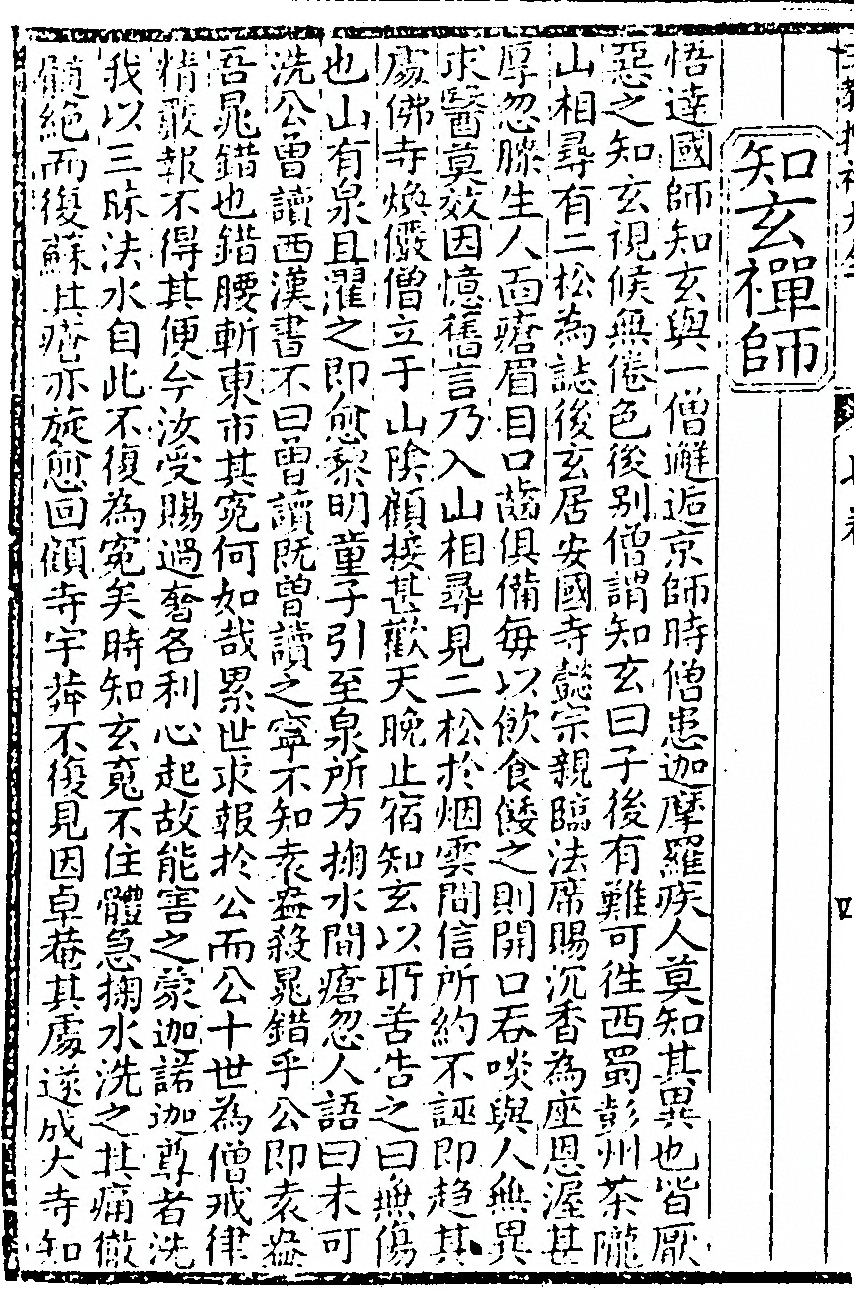 知玄禪師
悟達國師知玄與一僧邂逅京師時僧患迦摩羅疾人莫知其異也皆厭
惡之知玄視候無倦色後别僧謂知玄曰子後有難可徃西蜀彭州茶隴
山相尋有二松為誌後玄居安國寺懿宗親臨法席賜沉香為座恩渥甚
厚忽膝生人面瘡眉目口齒俱備每以飲食餧之則開口吞啖與人無異
求醫莫效因憶舊言乃入山相尋見二松於烟雲間信所約不誣即趋其
處佛寺煥儼僧立于山陰顧接甚歡天晚止宿知玄以所苦告之曰無傷
也山有泉且濯之即愈黎明童子引至泉所方掬水間瘡忽人語曰未可
洗公曾讀西漢書不曰曾讀既曾讀之寧不知袁盎殺晁錯乎公即袁盎
吾晁錯也錯腰斬東市其寃何如哉累世求報於公而公十世為僧戒律
精嚴報不得其便今汝受賜過奢名利心起故能害之蒙迦諾迦尊者洗
我以三昧法水自此不復為寃矣時知玄䰟不住體急掬水洗之其痛徹
髓絶而復蘇其瘡亦旋愈回顧寺宇莾不復見因卓菴其處遂成大寺知